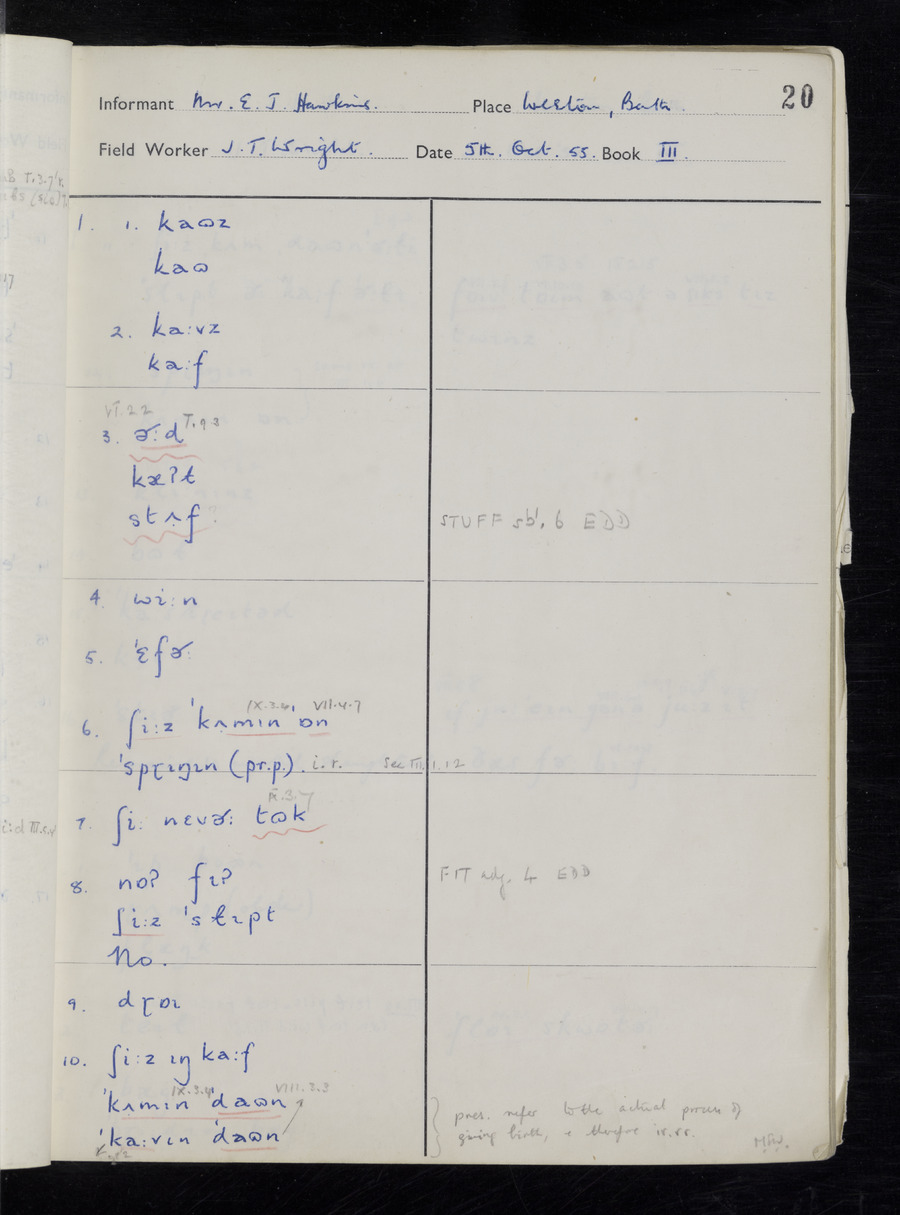 Informant Mr. E. J. Hawkins. Place Weston, Bath. 20
Field Worker J. T. Wright. Date 5th. Oct. 55. Book III.
1. 1. kaɷz
kaɷ
2. ka:vz
ka:f
VI.2.2
3. ɚ:d T.9.3
kæʔt
stʌf ? STUFF sb¹. 6 EDD
4. wi:n
5. ˈɛfɚ:
IX.3.4 VII.4.7
6. ʃi:z ˈkʌmɪn ˈɒn
ˈspɽɪŋɪn (pr.p.). i.r. See III.1.12
IX.3.7
7. ʃi: nɛvɚ: tɷk
8. noʔ fɪʔ FIT adj. 4 EDD
ʃi:z ˈslɪpt
No.
9. dɽɒɪ
10. ʃi:z ɪŋ ka:f
IX.3.4 VIII.3.3
ˈkʌmɪn ˈdaɷn } pres. refer to the actual process of
ˈka:vɪn ˈdaɷn giving birth, & therefore ir.rr.